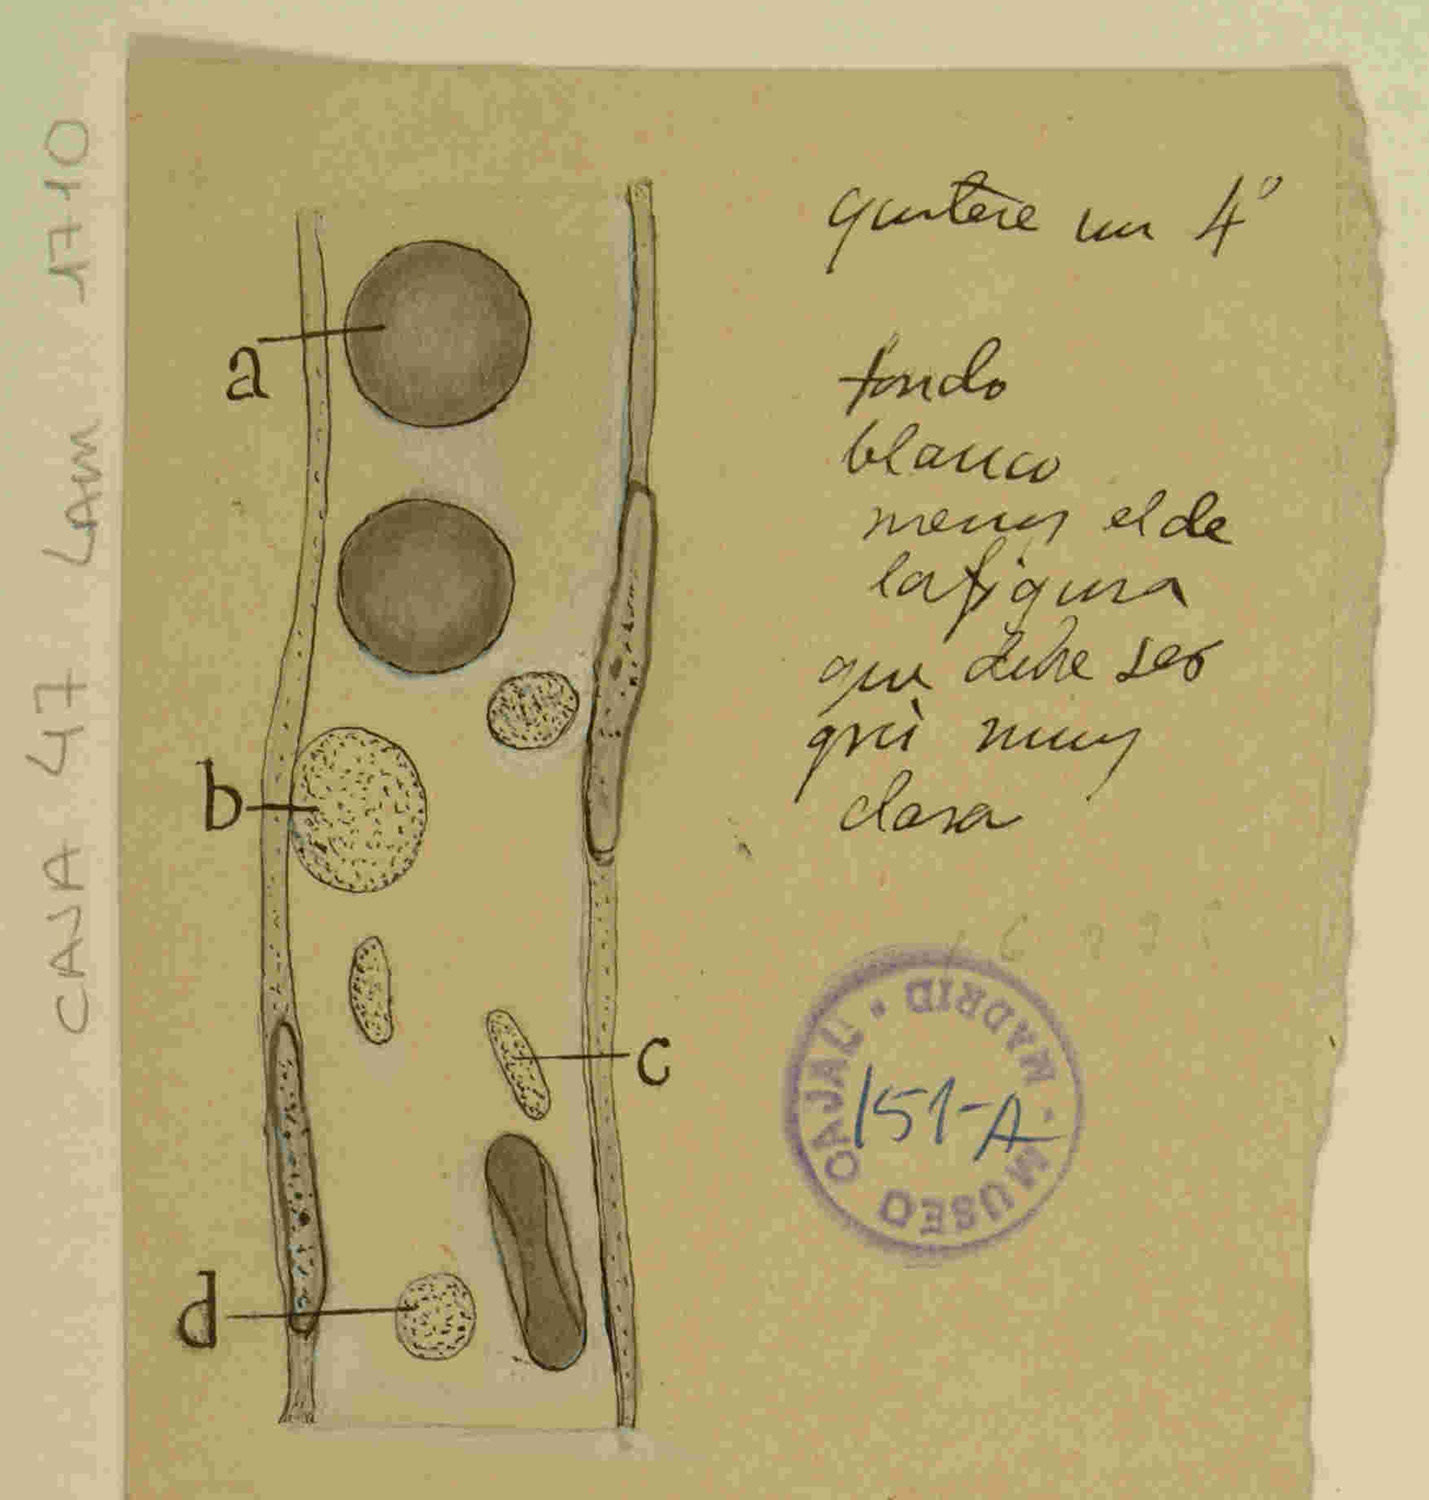 CAJA 47 LAM 1710
quitese un 4º
fondo
blanco
menos el de
la figura
que debe ser
gris muy
clara
a
b
c
d
MUSEO CAJAL · MADRID ·
151-A